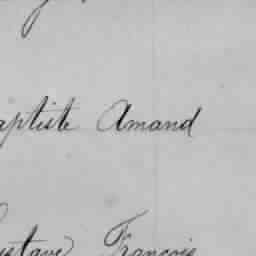 aptiste Amand
ustave François